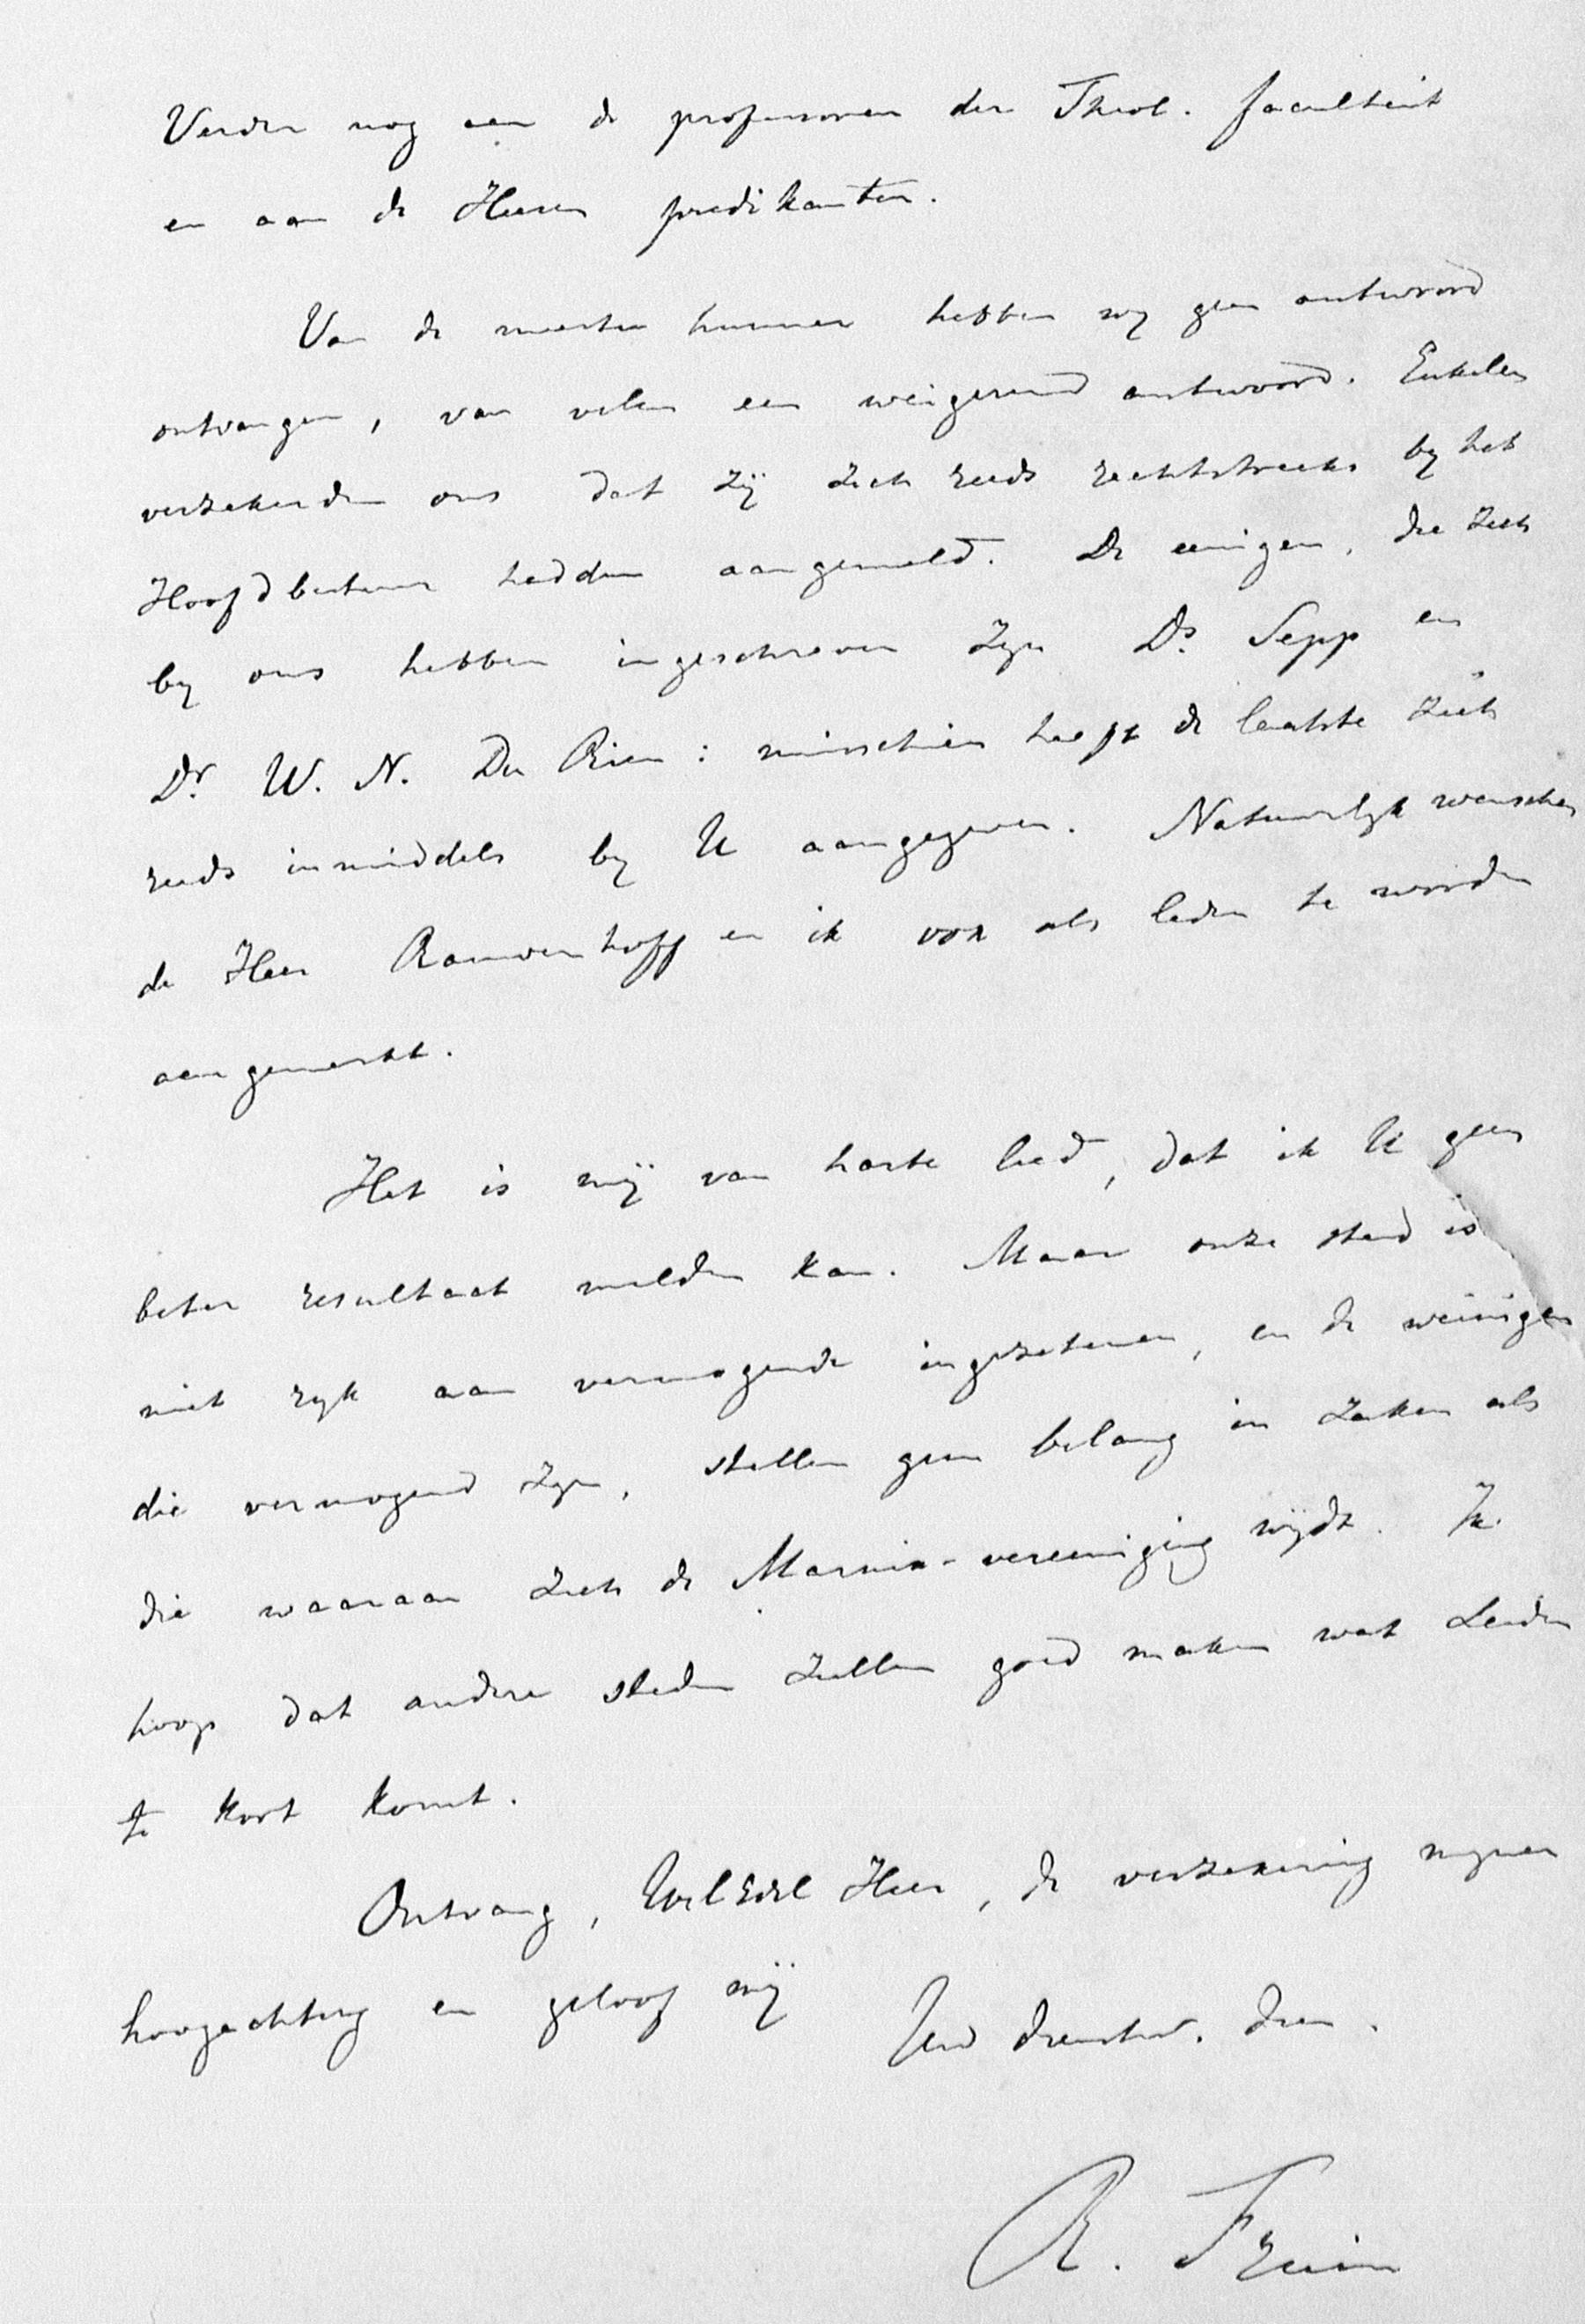 Verder nog aan de professoren der Theol. faculteit
en aan de Heeren predikanten.
Van de meesten hunner hebben wy geen antwoord
ontvangen, van velen een weigerend antwoord. Enkelen
verzekerden ons dat zij zich reeds rechtstreeks by het
Hoofdbestuur hadden aangemeld. De eenigen, die zich
by ons hebben ingeschreven zyn Ds. Sepp en
Dr. W. N. Du Rieu: misschien heeft de laatste zich
reeds inmiddels by U aangegeven. Natuurlyk wenschen
de Heer Rauwenhoff en ik ook als leden te worden
aangemerkt.
Het is mij van harte leed, dat ik U geen
beter resultaat melden kan. Maar onze stad is
niet ryk aan vermogende ingezetenen, en de weinigen
die vermogend zyn, stellen geen belang in zaken als
die waaraan zich de Marnix-vereeniging wijdt. Ik
hoop dat andere steden zullen goed maken wat Leiden
te kort komt.
Ontvang, WelEdel Heer, de verzekering myner
hoogachting en geloof mij Uw dienstw. dien.
R. Fruin